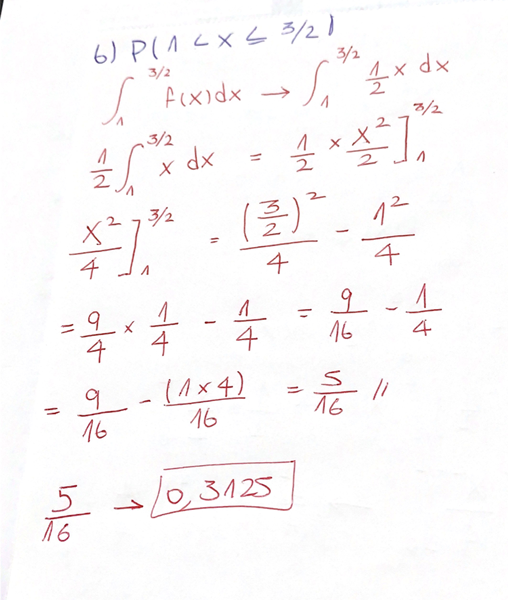 6) P(1 < x ≤ 3/2)
∫₁^3/2 f(x)dx → ∫₁^3/2 1/2 x dx
1/2 ∫₁^3/2 x dx = 1/2 × x²/2 ]₁^3/2
x²/4 ]₁^3/2 = (3/2)²/4 - 1²/4
= 9/4 × 1/4 - 1/4 = 9/16 - 1/4
= 9/16 - (1×4)/16 = 5/16 //
5/16 → 0,3125